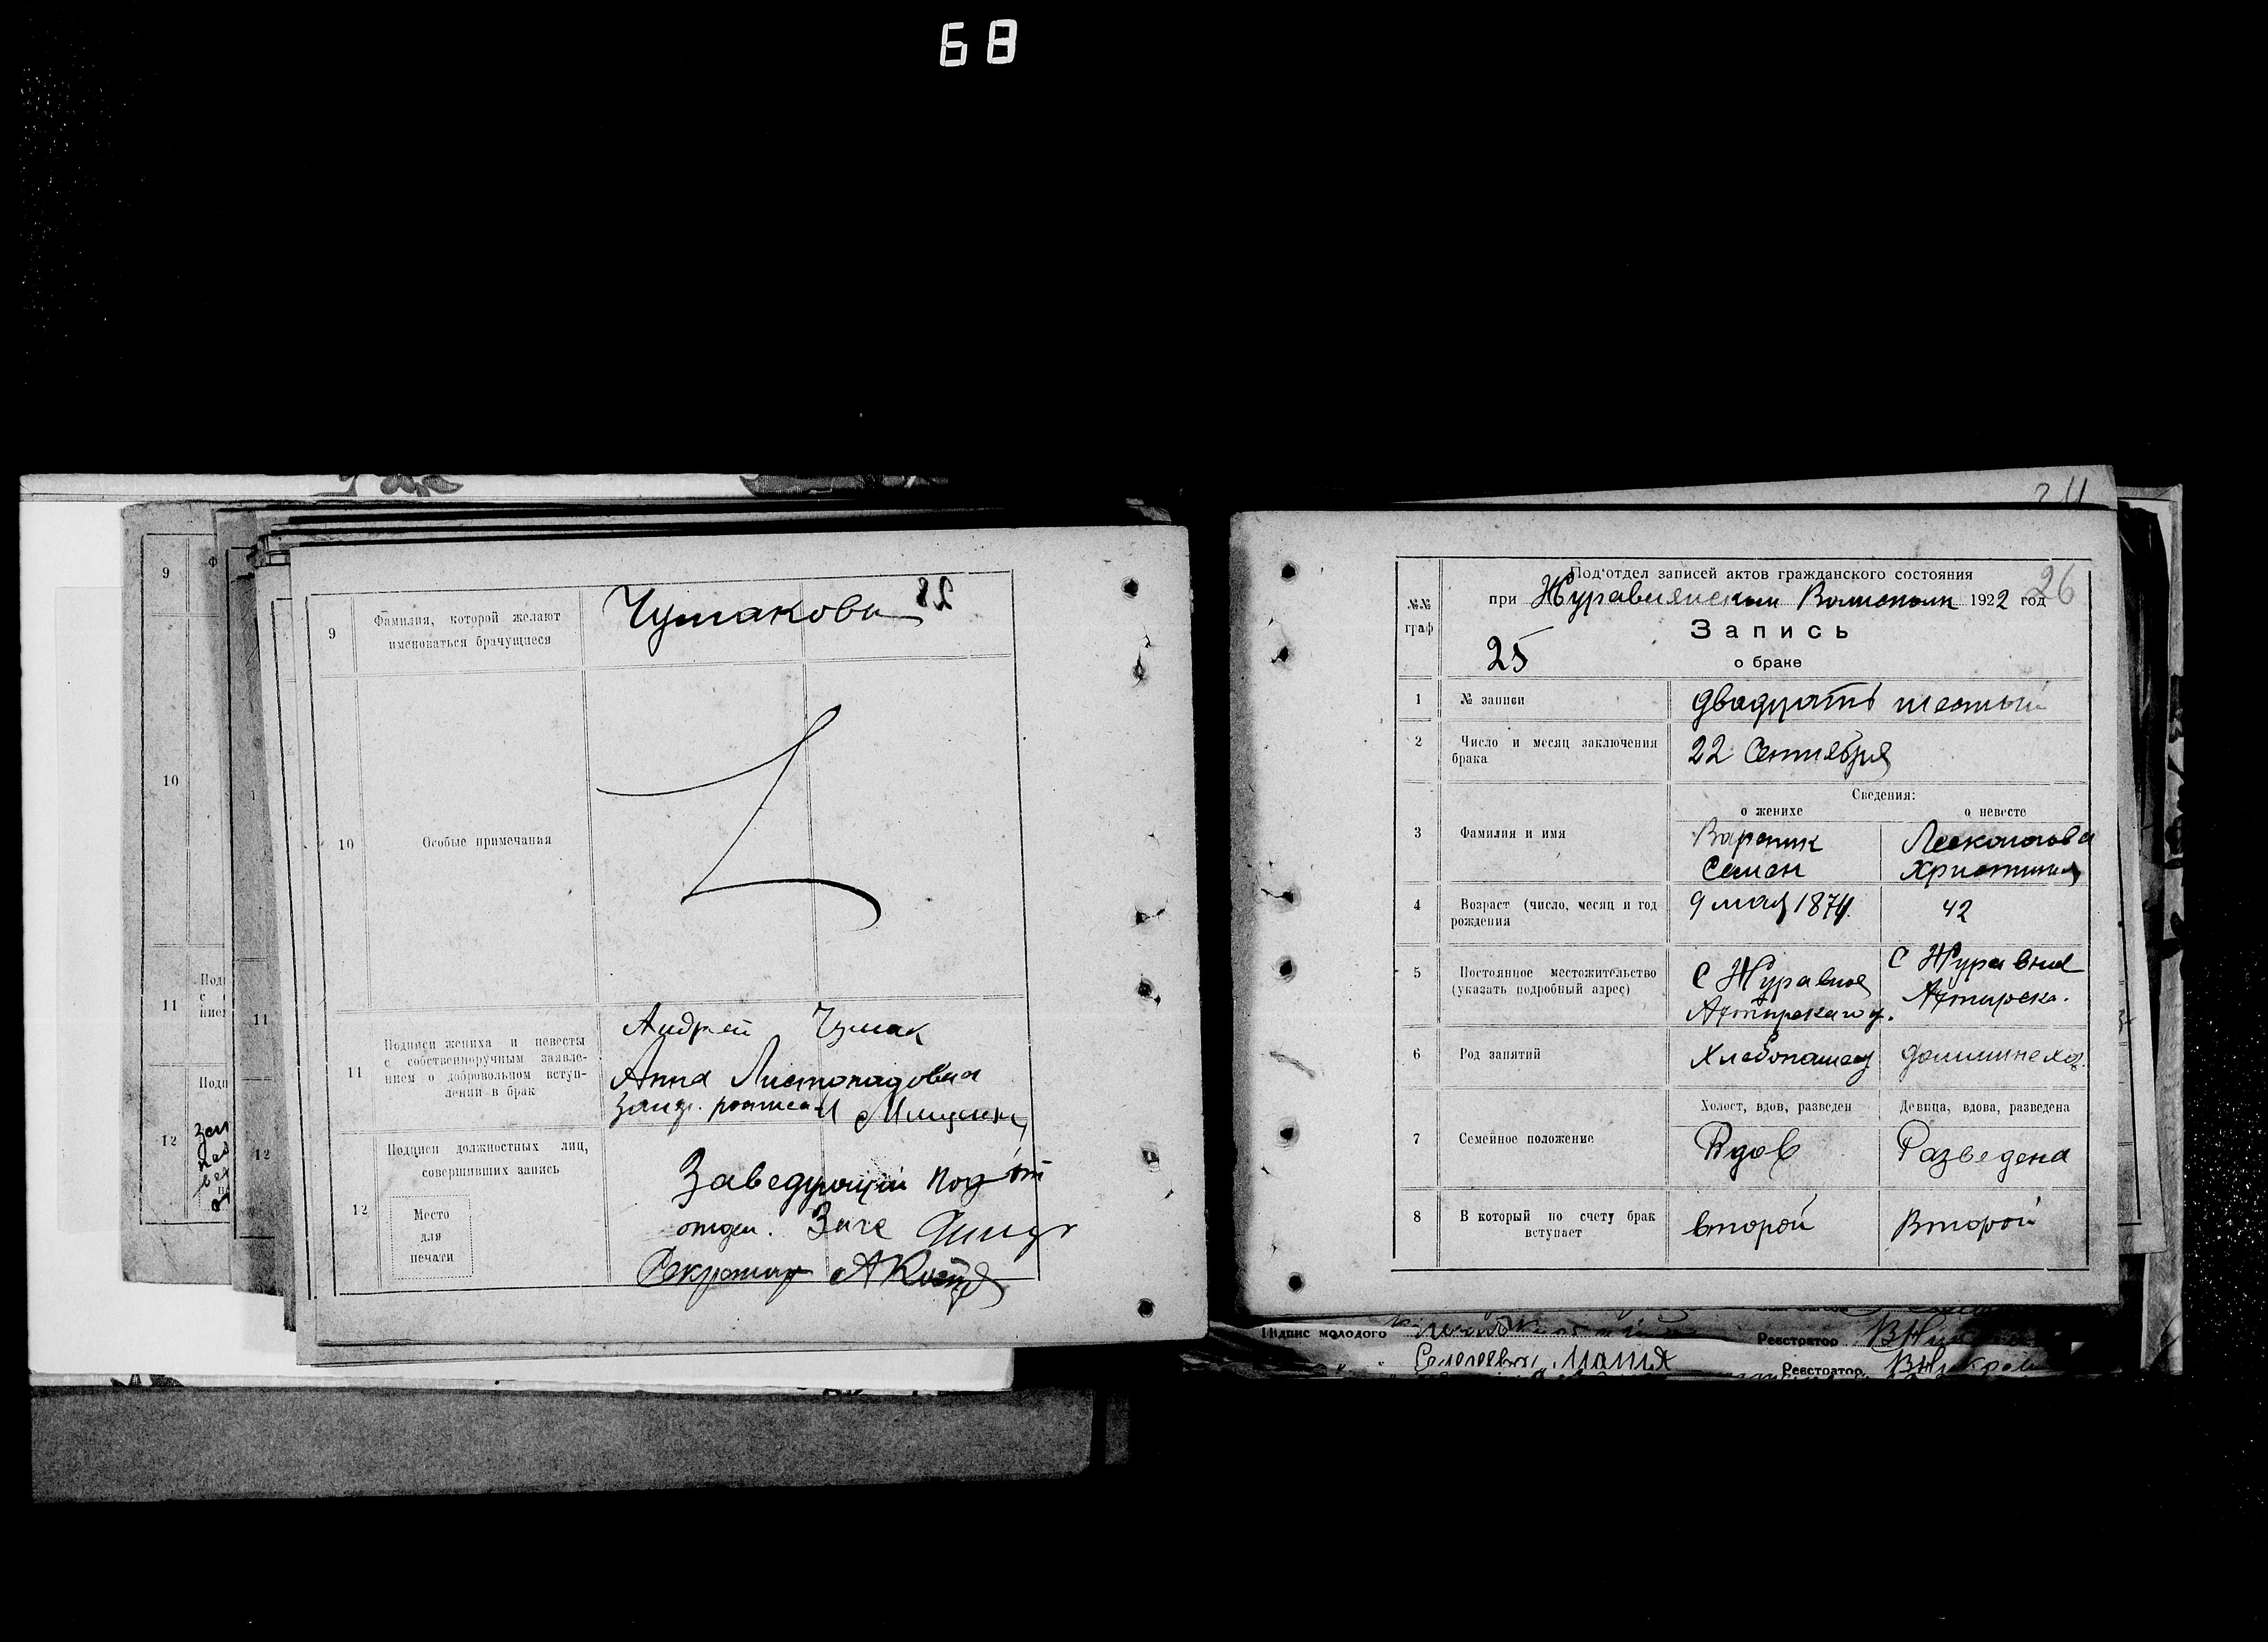 68
9
Фамилия, которой желают
именоваться брачущиеся
Чумаковы
10
Особые примечания
11
Подписи жениха и невесты
с собственноручным заявле-
нием о добровольном вступ-
лении в брак
Андрей Чумак
Анна Листопадовна
12
Подписи должностных лиц,
совершивших запись
Место
для
печати
Заведующий Под от
отдел. Загс
Секретарь
9
10
11
12
11
12
24
№№
граф
Под‘отдел записей актов гражданского состояния
при Журавлянском 1922 год
26
Запись
о браке
25
1
№ записи
двадцать шестый
2
Число и месяц заключения
брака
22 Сентября
Сведения:
о женихе
о невесте
3
Фамилия и имя
Вареник
Семен
Христина
4
Возраст (число, месяц и год
рождения
9 мая 1874.
42
5
Постоянное местожительство
(указать подробный адрес)
С Журавное
С Журавное
Ахтырска.
6
Род занятий
Хлебопашец
7
Семейное положение
Холост, вдов, разведен
Девица, вдова, разведена
Вдов
Разведена
8
В который по счету брак
вступает
второй
Второй
Підпис молодого
Реєстратор
Реєстратор